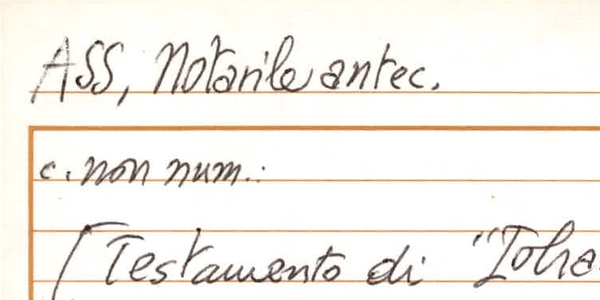 ASS, Notarile antec.
c. non num.:
[Testamento di "Ioha